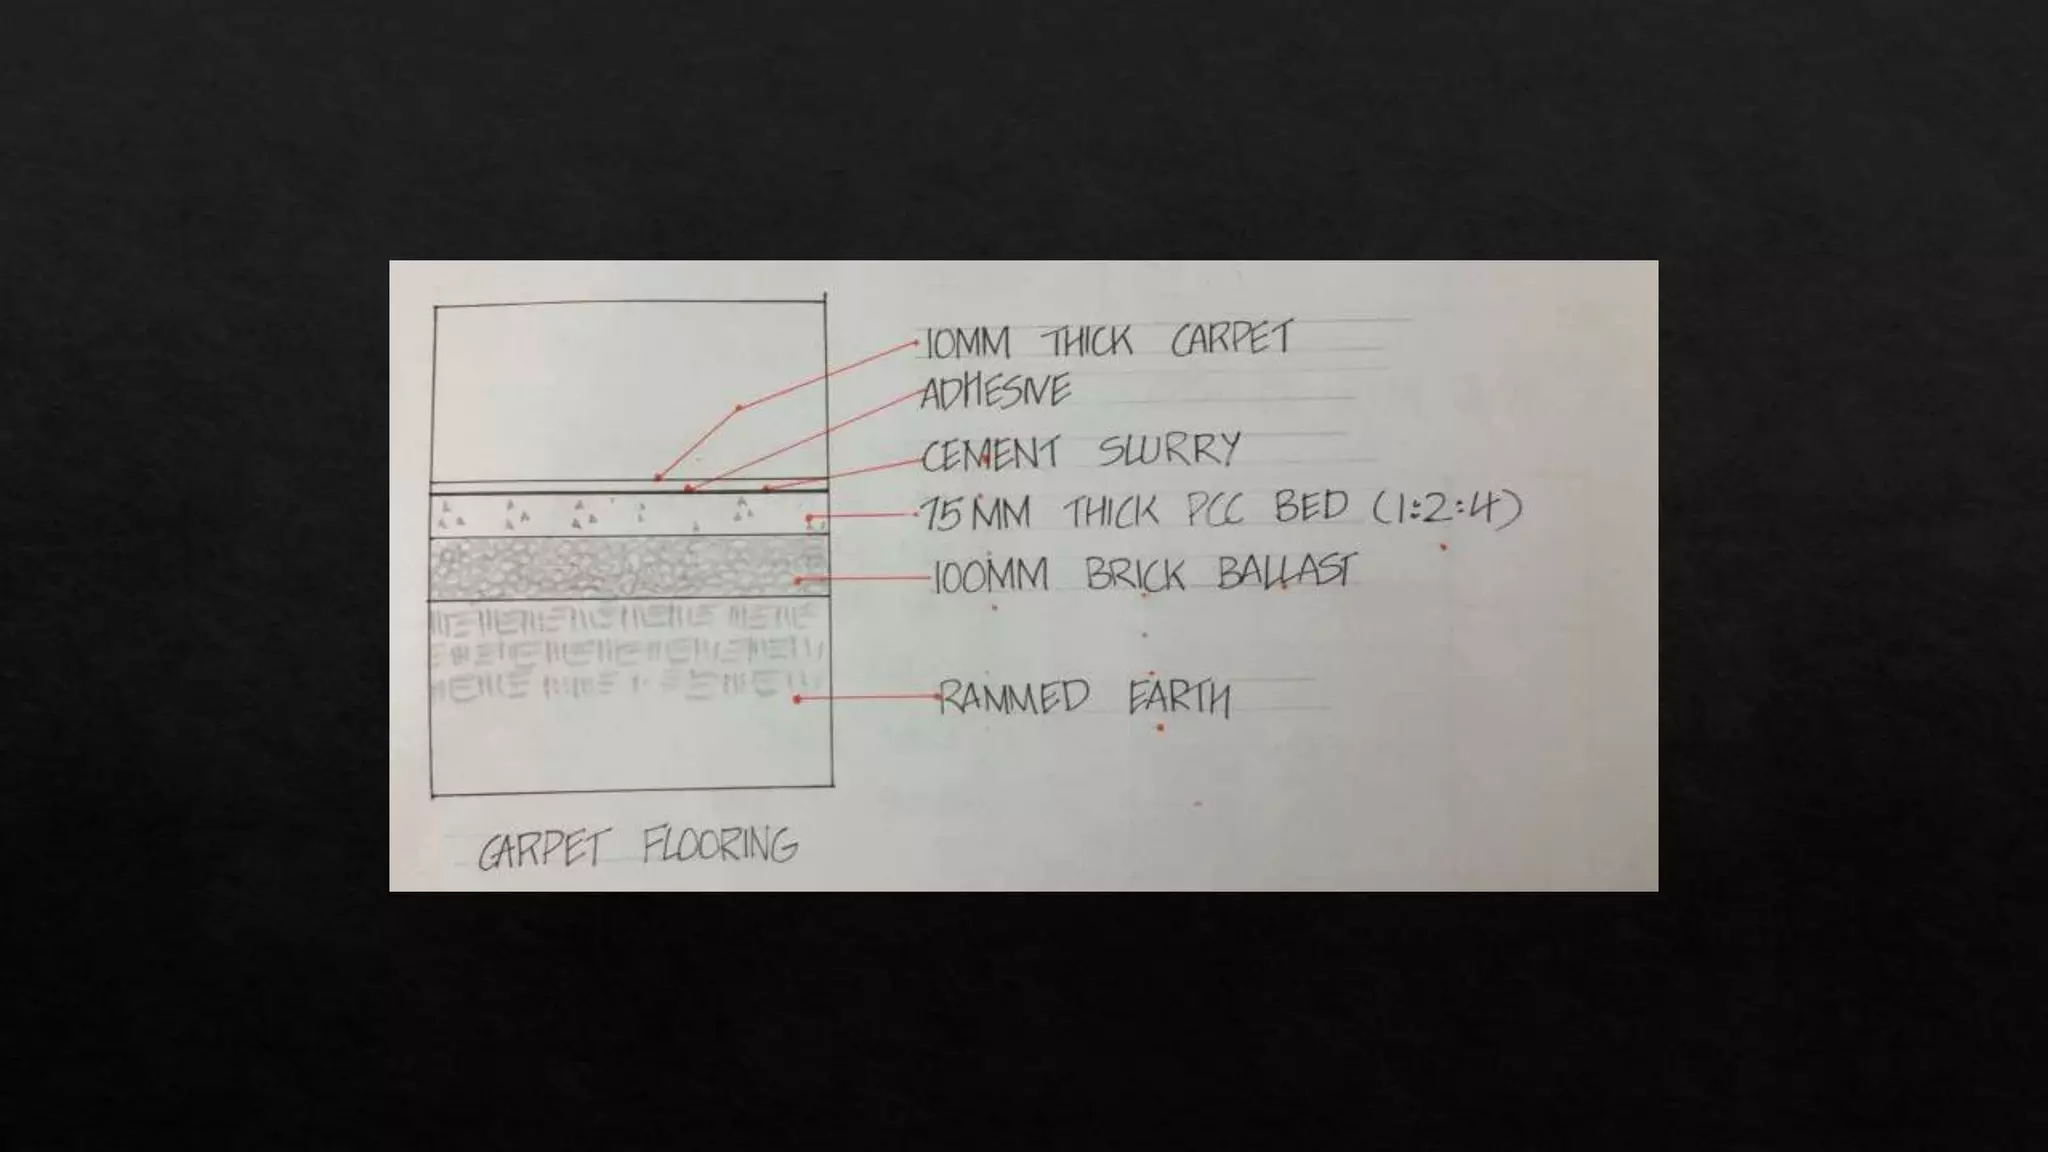 10MM THICK CARPET
ADHESIVE
CEMENT SLURRY
75MM THICK PCC BED (1:2:4)
100MM BRICK BALLAST
RAMMED EARTH
CARPET FLOORING